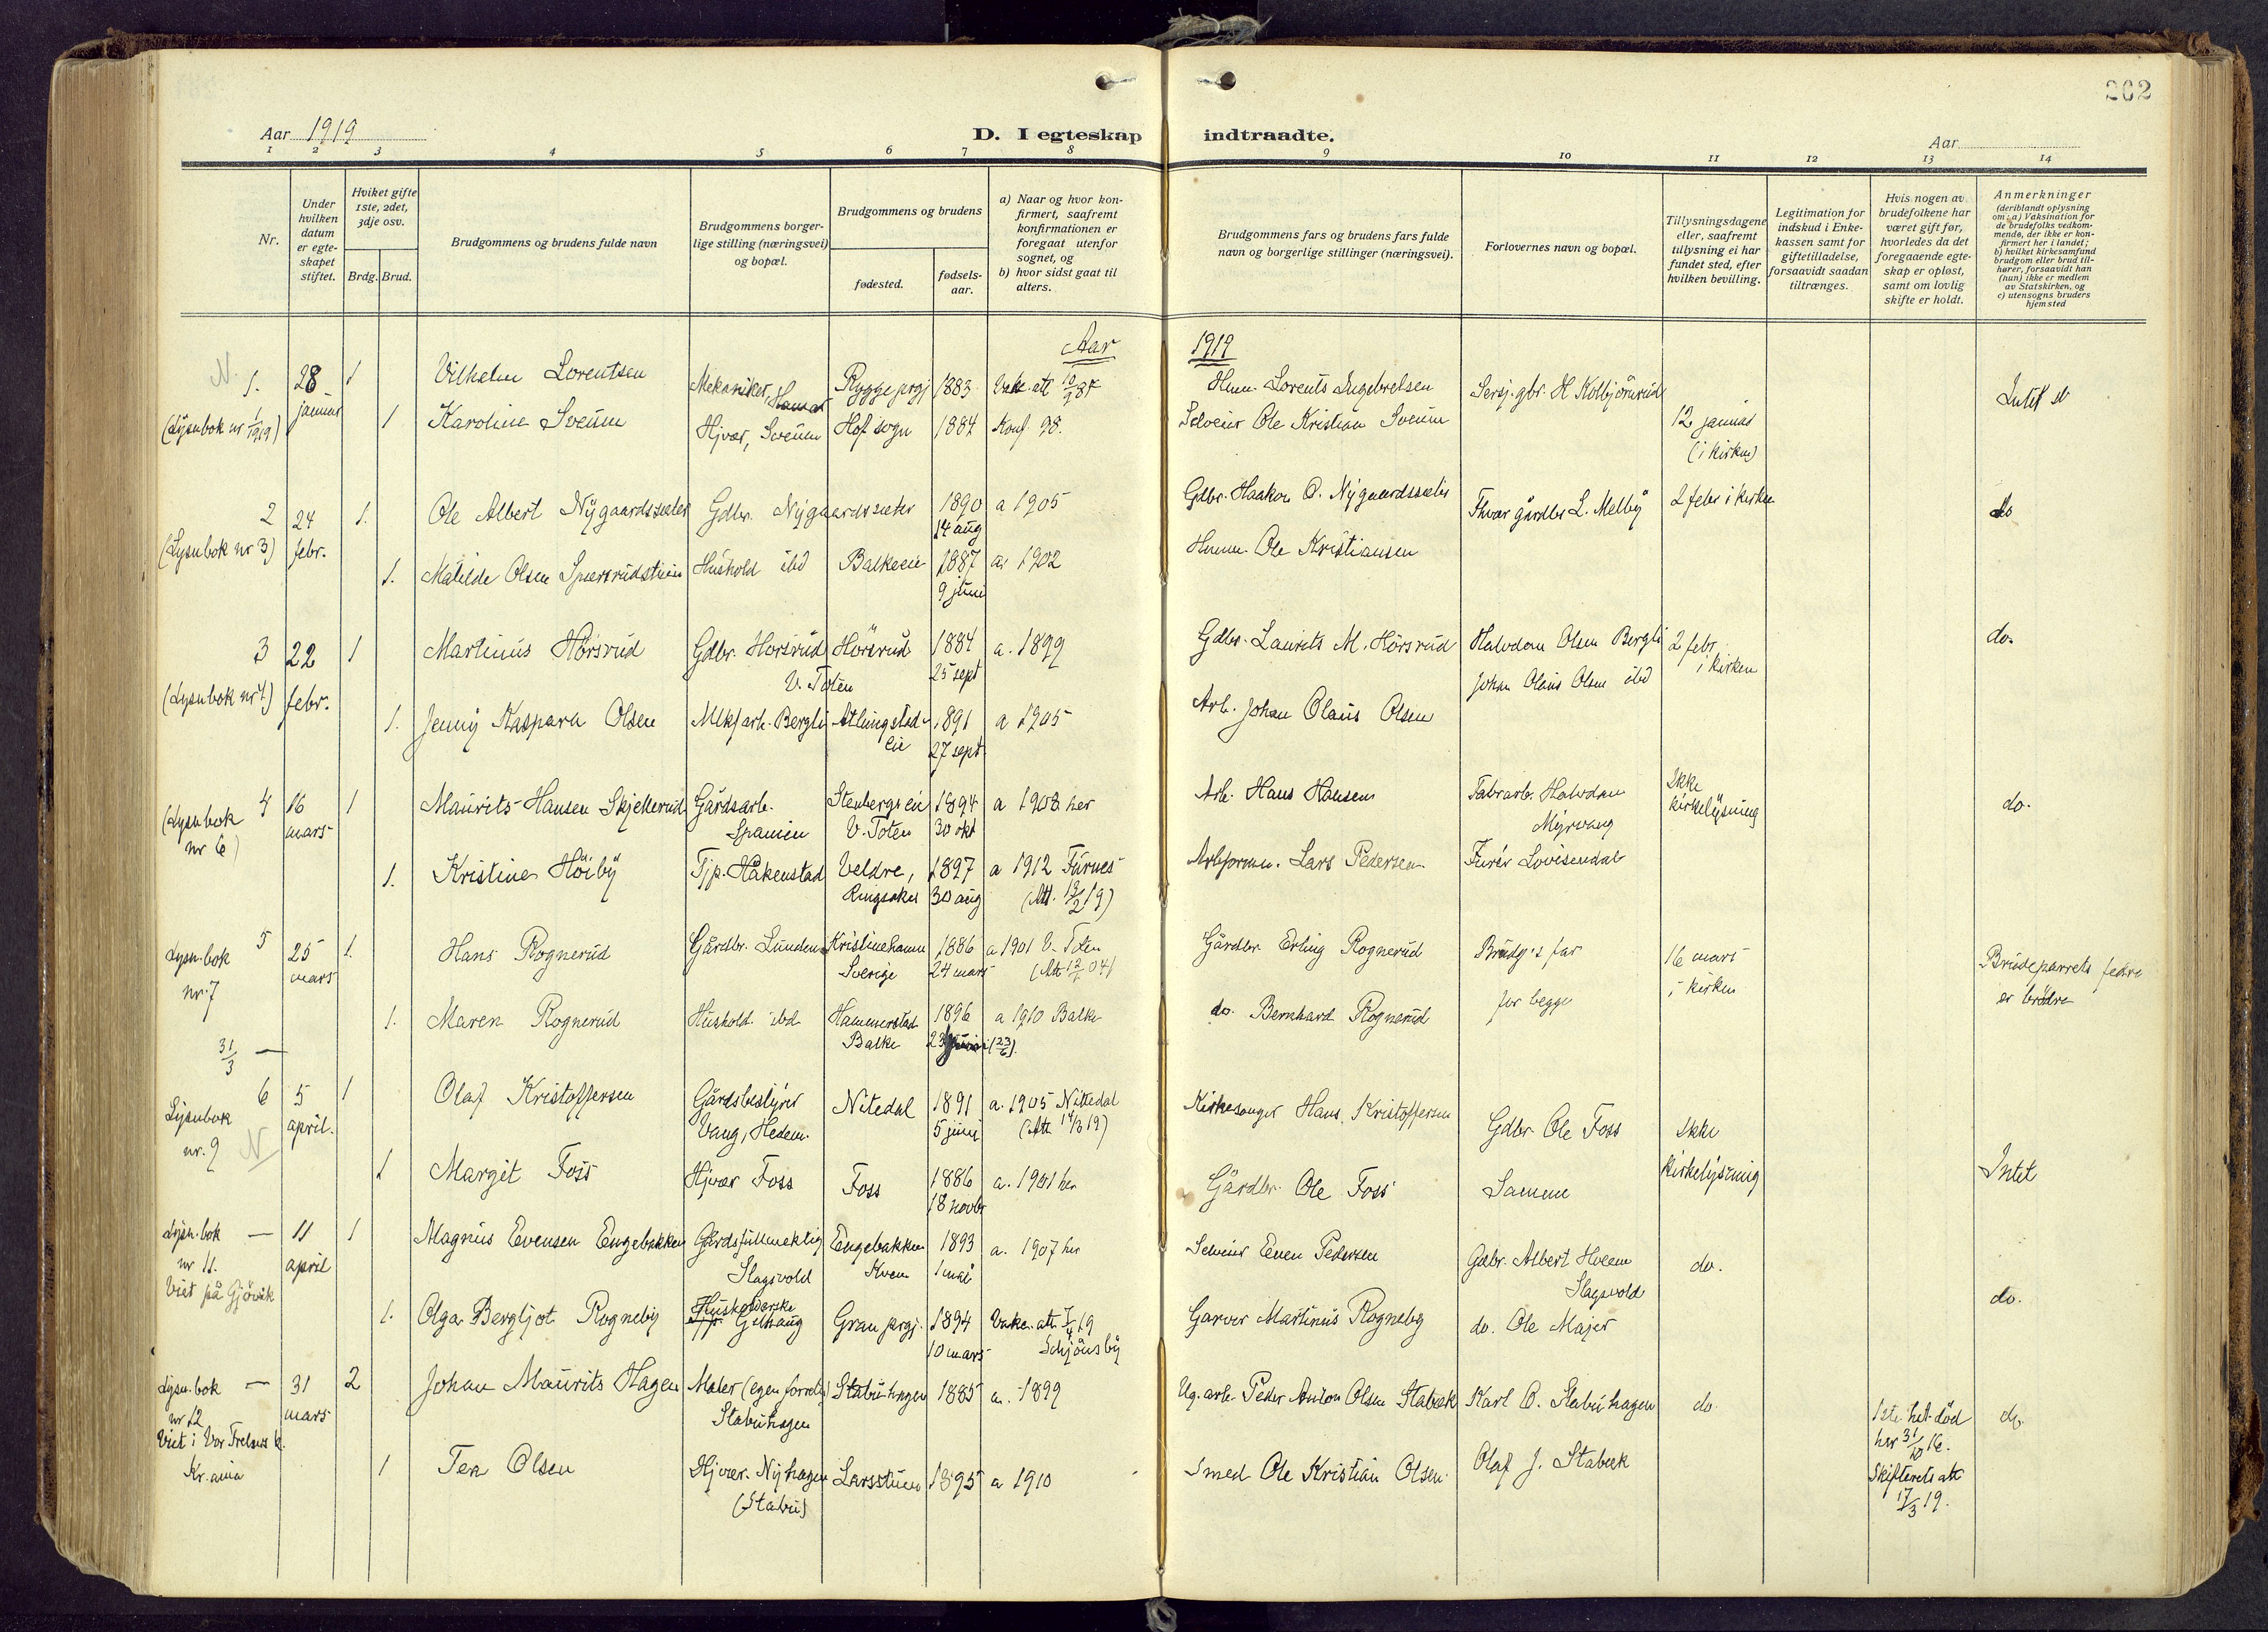 202
Aar 1919
D. I egteskap indtraadte.
Aar
1 2 3 4 5 6 7 8 9 10 11 12 13 14
Nr.
Under hvilken datum er egteskapet stiftet.
Hviket gifte 1ste, 2det, 3dje osv.
Brdg. Brud.
Brudgommens og brudens fulde navn
Brudgommens borgerlige stilling (næringsvei) og bopæl.
Brudgommens og brudens
fødested.
fødselsaar.
a) Naar og hvor konfirmert, saafremt konfirmationen er foregaat utenfor sognet, og
b) hvor sidst gaat til alters.
Brudgommens fars og brudens fars fulde navn og borgerlige stillinger (næringsvei).
Forlovernes navn og bopæl.
Tillysningsdagene eller, saafremt tillysning ei har fundet sted, efter hvilken bevilling.
Legitimation for indskud i Enkekassen samt for giftetilladelse, forsaavidt saadan tiltrænges.
Hvis nogen av brudefolkene har været gift før, hvorledes da det foregaaende egteskap er opløst, samt om lovlig skifte er holdt.
Anmerkninger (deriblandt oplysning om: a) Vaksination for de brudefolks vedkommende, der ikke er konfirmert her i landet; b) hvilket kirkesamfund brudgom eller brud tilhører, forsaavidt han (hun) ikke er medlem av Statskirken, og c) utensogns bruders hjemsted
Aar 1919
N. 1. 28 januar 1 Vilhelm Lorentsen Mekaniker, Hamar Rygge prgj 1883 Hmn. Lorents Ingebretsen Sersj. gbr. H Kolbjörnrud
(Lysn.bok nr 1/1919) 1 Karoline Sveum Hjvær, Sveum Hof sogn 1884 Konf 98. Selveier Ole Kristian Sveum 12 januar (i kirken) Intet
2 24 febr. 1. Ole Albert Nygaardssæter Gdbr. Nygaardssæter 1890 14 aug a 1905 Gdbr. Haakon O. Nygaardssæter Thvar gårdbr L. Melby 2 febr i kirken do
(Lysn.bok nr 3) 1. Matilde Olsen Sparsrudstuen Hushold ibd Balkeeie 1887 9 juni a. 1902 Husmn. Ole Kristiansen
3 22 febr. 1 Martinus Hörsrud Gdbr. Horsrud V. Toten Hörsrud 1884 25 sept a. 1899 Gdbr. Laurits M. Hörsrud Halvdan Olsen Bergli 2 febr i kirken do.
(Lysn.bok nr 4) 1. Jenny Kaspara Olsen Mekfarb. Bergli Atlungstad-eie 1891 27 sept a 1905 Arb. Johan Olaus Olsen Johan Olaus Olsen ibd
4 16 mars 1 Maurits Hansen Skjellerud Gårdsarb. Spanien Stenbergs eie V. Toten 1894 30 okt a 1908 her Arb. Hans Hansen Fabrarb. Halvdan Myrvang Ikke kirkelysning do.
(Lysn.bok nr 6) 1. Kristine Höiby Tjp. Håkenstad Veldre, Ringsaker 1897 30 aug a 1912 Furnes (Att. 13/2 19) Arbformn. Lars Pedersen Furér Lovisendal
Lysn.bok nr. 7 5 25 mars 1. Hans Rognerud Gårdbr. Lunden Kristinehamn Sverige 1886 24 mars a 1901 V. Toten Gårdbr. Erling Rognerud Brudg's far for begge 16 mars i kirken Brudeparrets fedre er brødre
1. Maren Rognerud Hushold. ibd Hammerstad Balke 1896 23 juni (23/6). a 1910 Balke do. Bernhard Rognerud
31/3 —
6 5 april. 1 Olaf Kristoffersen Gårdsbestyrer Vang, Hedem. Nitedal 1891 5 juni a. 1905 Nittedal (Att 14/3 19) Kirkesanger Hans Kristoffersen Gdbr. Ole Foss Ikke kirkelysning
Lysnbok nr. 9 N 1 Margit Foss Hjvær Foss Foss 1886 18 novbr a. 1901 her Gårdbr. Ole Foss Samme Intet
Lysn.bok nr 11. — 11 april 1 Magnus Evensen Engebakken Gårdsfullmektig Slagsvold Engebakken Kven 1893 1 mai a. 1907 her Selveier Even Pedersen Gdbr. Albert Hveem Slagsvold do.
Viet på Gjövik 1. Olga Bergljot Rogneby Husholderske Tjp. Gihaug Gran prgj. 1894 10 mars Vakc. att. 7/4 19 Schjönsby Garver Martinus Rogneby do. Ole Majer do.
Lysn.bok nr 12 — 31 mars 2 Johan Maurits Hagen Maler (egen forretn.) Stabuhagen Stabuhagen 1885 a. 1899 Ug. arb. Peder Anton Olsen Stabæk Karl O. Stabuhagen do 1ste hst. död her 31/10 16. Skifterets att 17/3 19. do.
Viet i Vor Frelsers k. Kr.ania 1 Tea Olsen Hjvær. Nyhagen (Stabu) Larsstuen 1895 a 1910 Smed Ole Kristian Olsen Olaf J. Stabæk